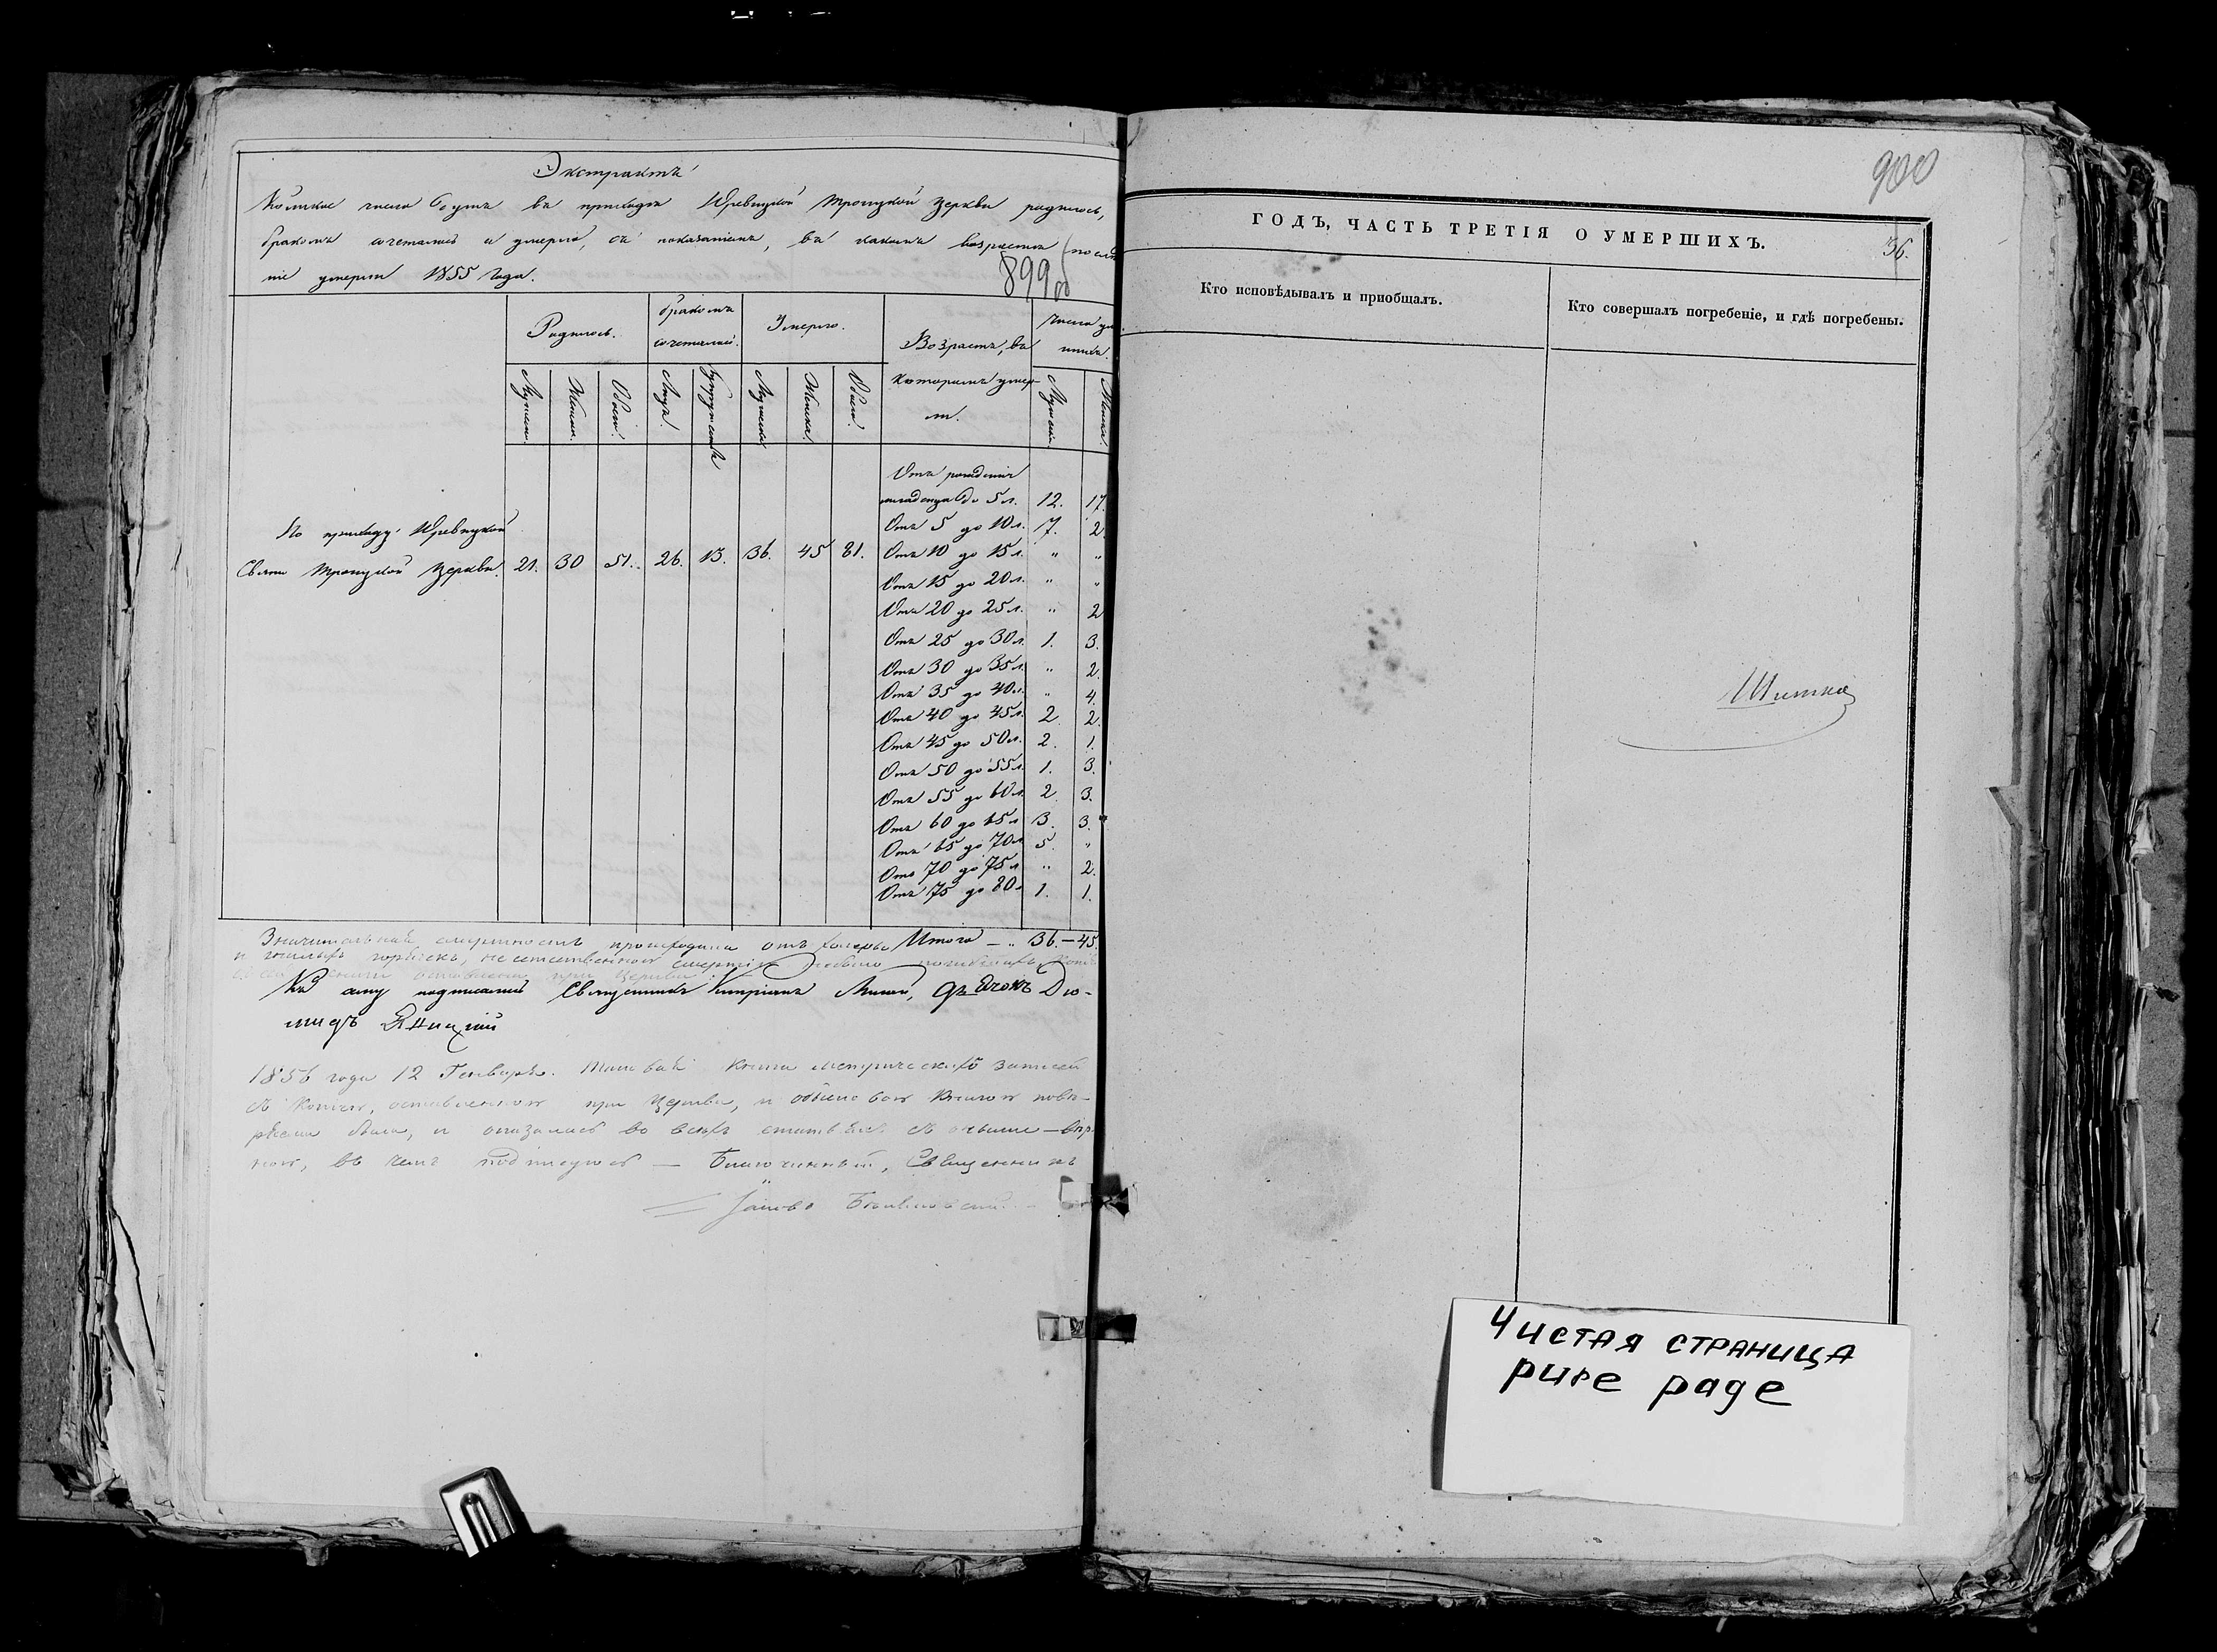 Экстрактъ
Коликое число душъ въ приходѣ Юревицкой Троицкой Церкви родилось,
бракомъ сочетались и умерло, съ показаніемъ, въ какомъ возрастѣ послѣд
ніе умерли 1855 года.
899 об
Родилось.
бракомъ сочетались.
Умерло.
Возрастъ, въ которомъ умерли.
Число умершихъ.
Мужск. Женск. Обоего. Лицъ. Супружествъ Мужска. Женска. Обоего. Мужск. Женска.
По приходу Юревицкой
Свято Троицкой Церкви. 21. 30 51. 26. 13. 36. 45 81.
Отъ рожденія
младенца до 5 л. 12. 17.
Отъ 5 до 10 л. 7. 2.
Отъ 10 до 15 л. " "
Отъ 15 до 20 л. " "
Отъ 20 до 25 л. " 2
Отъ 25 до 30 л. 1. 3.
Отъ 30 до 35 л. " 2.
Отъ 35 до 40 л. " 4.
Отъ 40 до 45 л. 2. 2.
Отъ 45 до 50 л. 2. 1.
Отъ 50 до 55 л. 1. 3.
Отъ 55 до 60 л. 2. 3.
Отъ 60 до 65 л. 3. 3.
Отъ 65 до 70 л. 5. "
Отъ 70 до 75 л. " 2.
Отъ 75 до 80 л. 1. 1.
Значительная смертность происходила отъ холеры Итого — 36. — 45.
и горячекъ, неестественною смертію
оставлена при Церкви
Къ сему подписались Священникъ Кипріанъ дьячокъ Дио-
мидъ Яницкій
1856 года 12 Генваря. Таковая книга метрическихъ записей
съ копіею, оставленною при Церкви, и обысковою книгою повѣ-
ряема была, и оказалась во всѣхъ статьяхъ съ оными вѣр-
ною, въ чемъ подписуюсь — Благочинный, Священникъ
Іаковъ
900
ГОДЪ, ЧАСТЬ ТРЕТІЯ О УМЕРШИХЪ.
36.
Кто исповѣдывалъ и пріобщалъ.
Кто совершалъ погребеніе, и гдѣ погребены.
Чистая страница
pure page